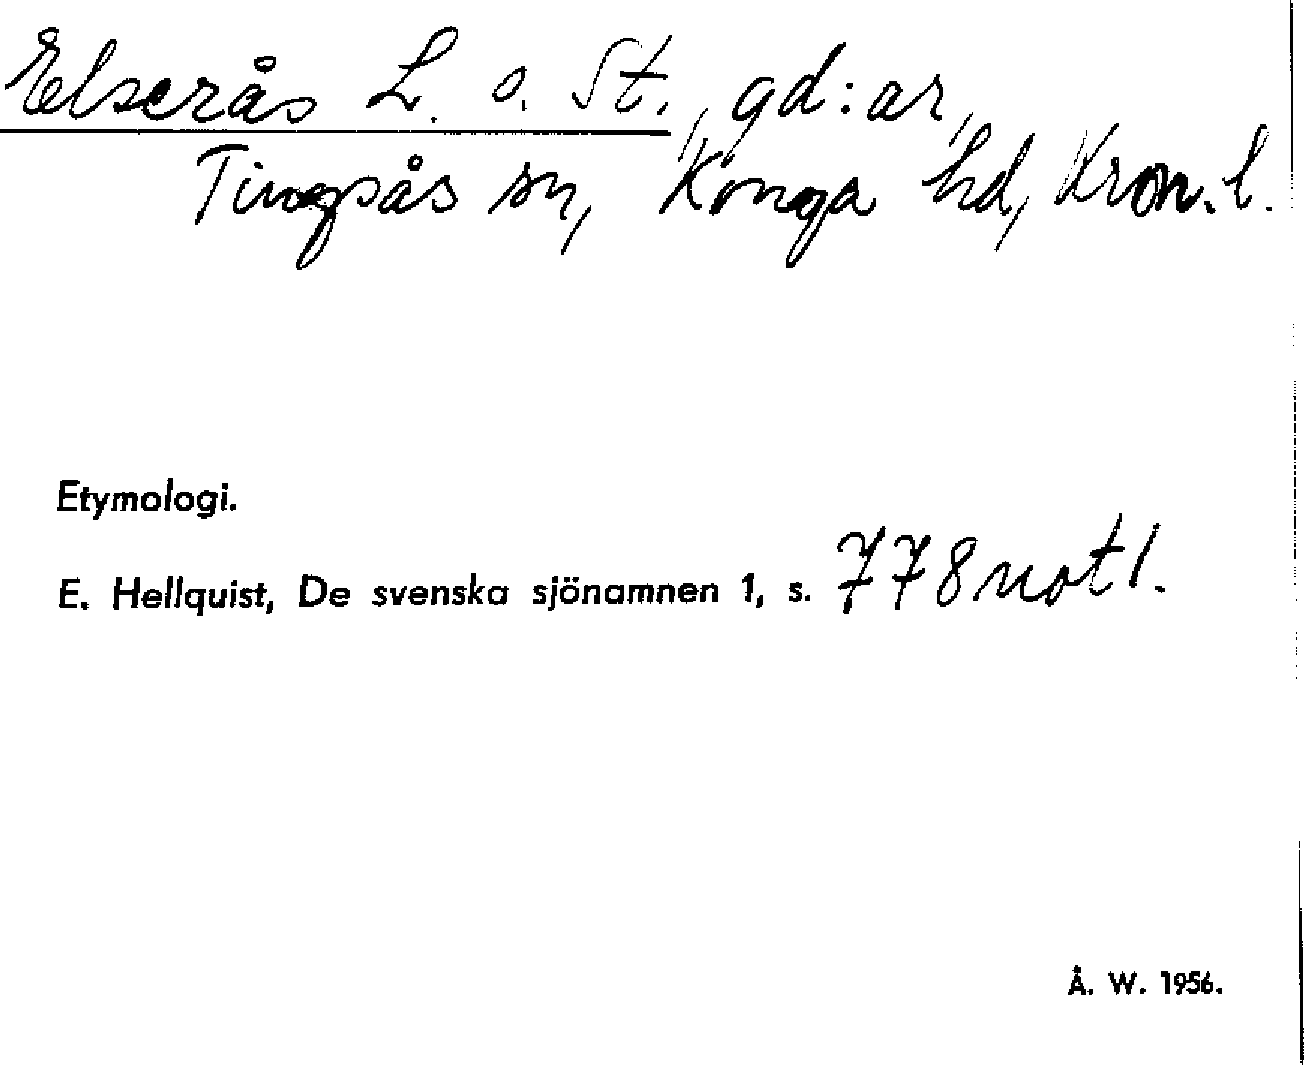 Elserås L. o. St., gd:ar,
Tingsås sn, Konga hd, Kron.l.
Etymologi.
E. Hellquist, De svenska sjönamnen 1, s. 778 not 1.
Å. W. 1956.